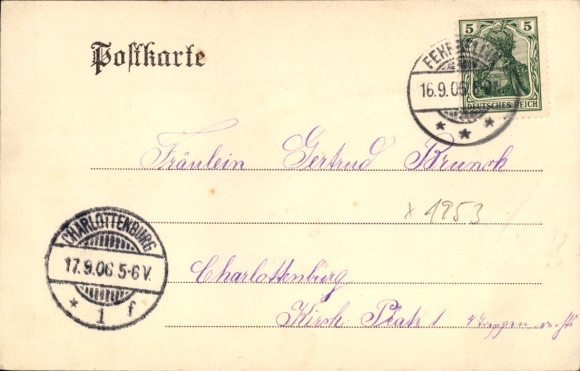 Postkarte
5 5
DEUTSCHES REICH
FEHRBELLIN
16.9.06
Fräulein Gertrud Brunsk
x 1953
CHARLOTTENBURG
17.9.06 5-6 V.
* 1 f
Charlottenburg
Kirch Platz 1 4 Treppen rechts